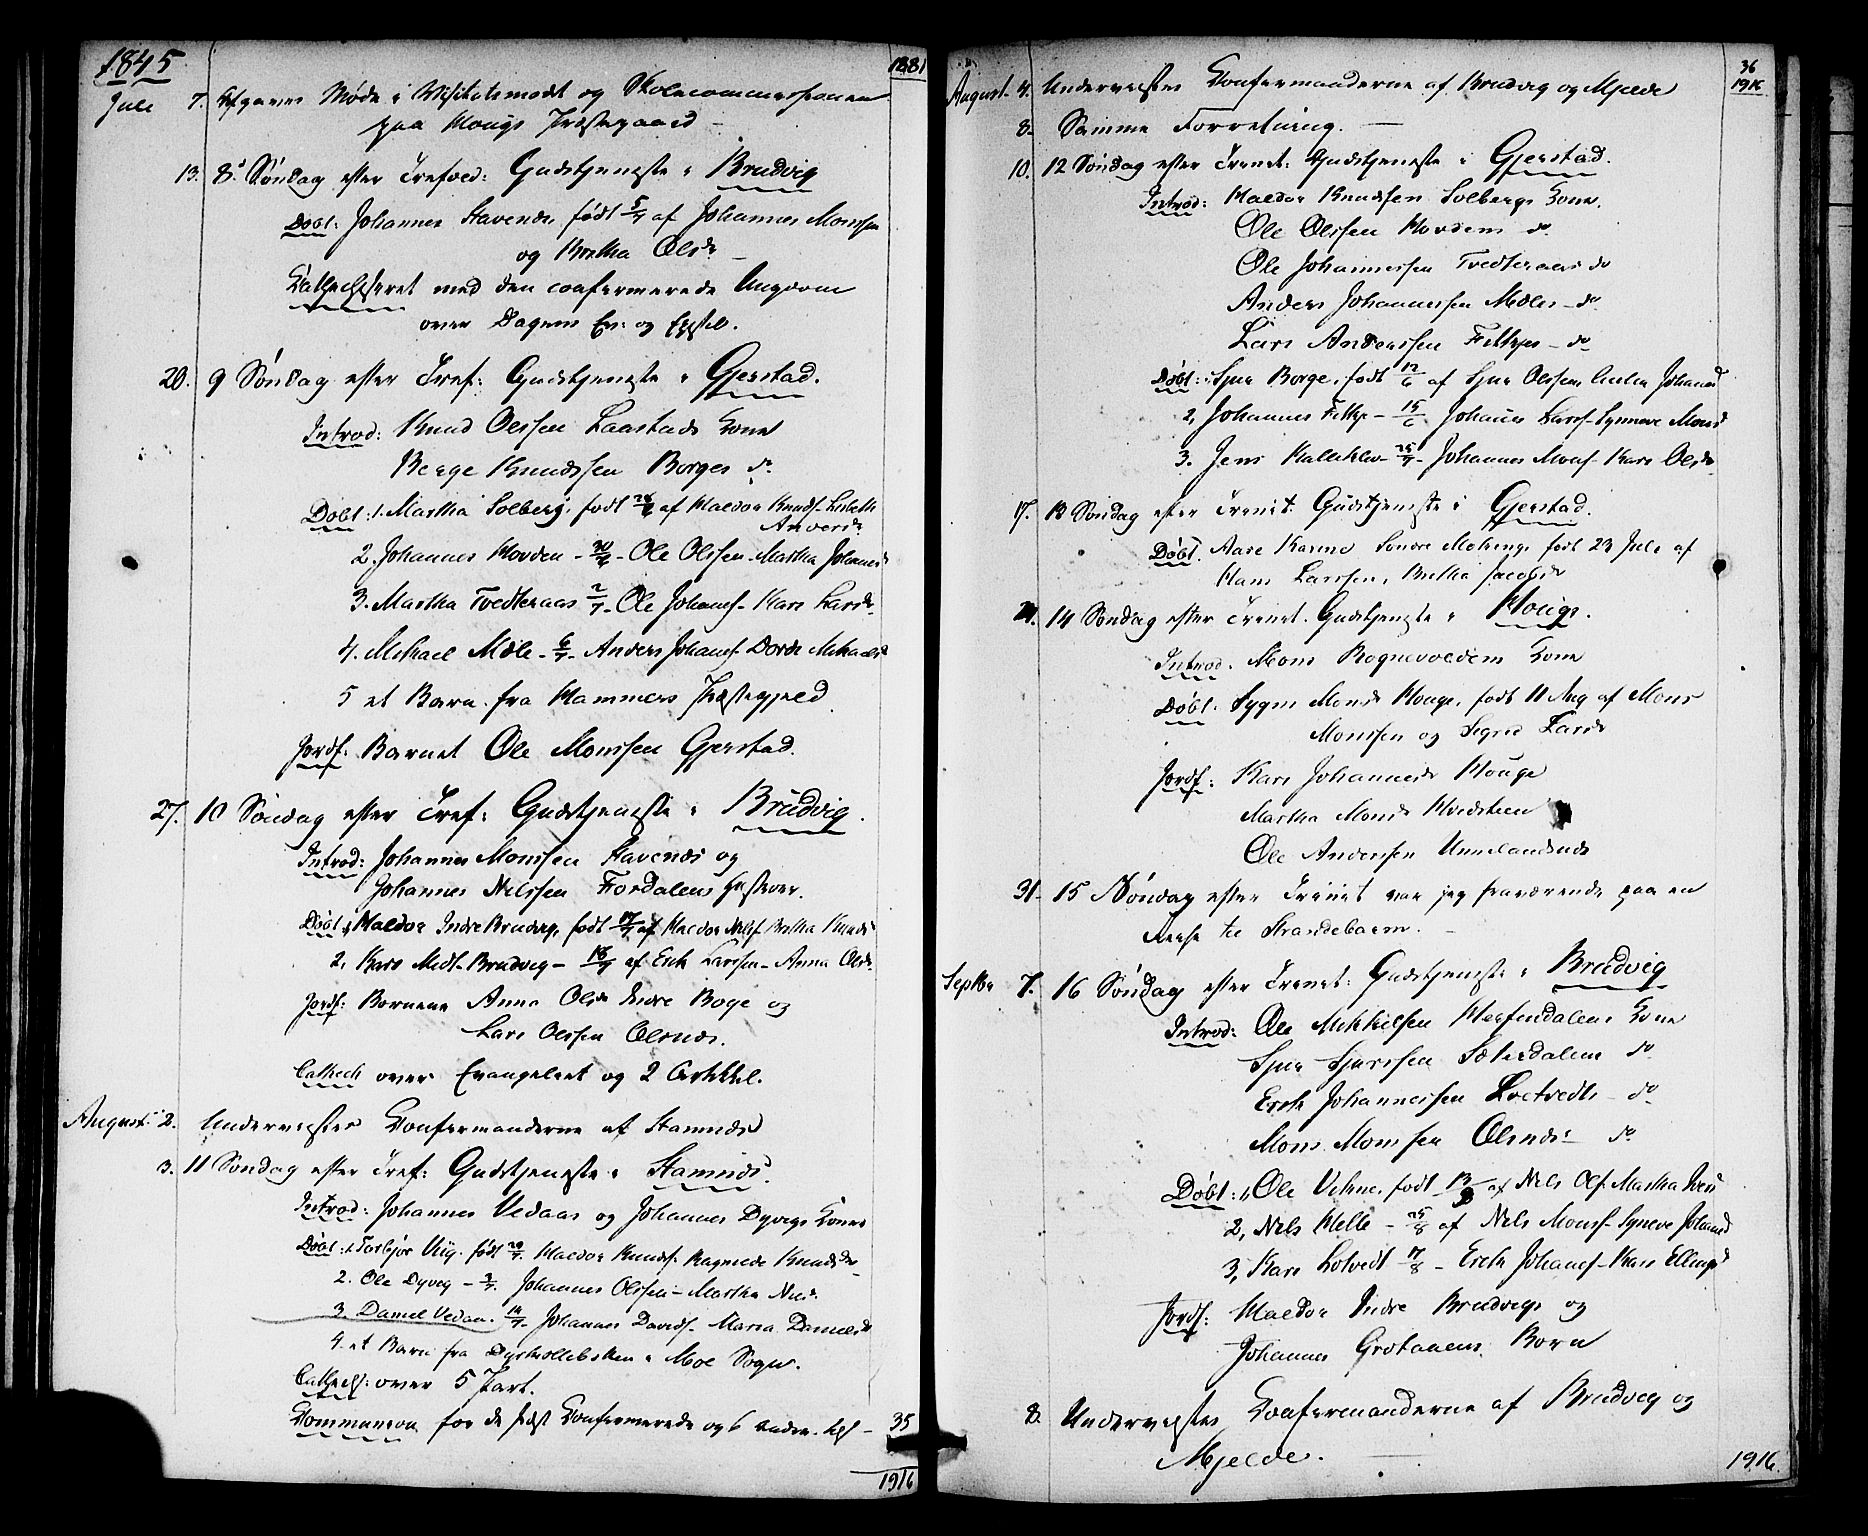 1845
1881
Jule 7. Møde i og Skolecommissionen
paa Houge Præstegaard –
13. 8de Søndag efter Trefold: Gudstjeneste i Brudvig
Døbt: Johannes Stavenes, født 5/7 af Johannes Monssen
og Bretha Olsdr –
Cathechiseret med den confermerede Ungdom
over Dagens Ev: og Epistel.
20. 9 Søndag efter Tref: Gudstjeneste i Gjerstad.
Introd: Knud Olssen Laastads Kone
Berge Knudssen Borges do
Døbt: 1. Martha Solberg, født af Haldor Knuds- Lisbeth
Andersdr
2. Johannes Hovden – – Ole Olssen – Martha Johannesdr
3. Martha Tvedteraas 2/7 – Ole Johans- Kari Larsdr
4. Mikael Mæle – 6/7 – Anders Johans- Dorde Mikaelsdr
5 et Barn fra Hammers Præstegjeld
Jordf: Barnet Ole Monssen Gjerstad.
27. 10 Søndag efter Tref: Gudstjeneste i Brudvig.
Introd: Johannes Monssen Stavenes og
Johannes Nilssen Fossdalens Hustruer.
Døbt: 1, Haldor Indre Brudvig, født af Haldor Nilss- Bretha Knudsdr
2, Kari Midt-Brudvig – 18/7 af Erik Larssen – Anna Olsdr
Jordf: Børnene Anna Olsdr Indre Boge og
Lars Olssen Olsnes.
Cathech over Evangeliet og 2 Artikkel.
August 2. Underviistes Confermanderne af Stamnes
3. 11 Søndag efter Tref: Gudstjeneste i Stamnes.
Introd: Johannes Vedaas og Johannes Dyvigs Koner
Døbt: 1. Torbjør Viig født Haldor Knuds- Ragnilde Knudsdr
2. Ole Dyvig – Johannes Olssen – Martha
3. Daniel Vedaa 14/7 Johannes Davids- Maria Danielsdr
4. et Barn fra i Moe Sogn.
Cathech: over 5 Part.
Communion for de sidst Confermerede og 6 andre – 35
1916
36
1916
August 4. Underviistes Confermanderne af Brudvig og Mjelde
8. Samme Forretning. –
10. 12 Søndag efter Trenet: Gudstjeneste i Gjerstad.
Introd: Haldor Knudssen Solbergs Kone.
Ole Olssen Hovdens do
Ole Johannessen Tvedteraas do
Anders Johannessen Mæles – do
Lars Anderssen – do
Døbt: Sjur Borge, født 12/6 af Sjur Olssen,
2, Johannes – 15/6 Johannes Larss- Synneve Monsdr
3. Jens Hallekleiv – 25/7 – Johannes Mons- Kari Olsdr
17. 13 Søndag efter Trenit: Gudstjeneste i Gjerstad.
Døbt. Aase Karine Søndre født 23 Jule af
Hans Larssen, Bretha Jacobsdr
24. 14 Søndag efter Trenet. Gudstjeneste i Houge.
Introd. Mons Rognevoldens Kone
Døbt. Monsdr Houge, født 11 Aug af Mons
Monssen og Sigrid Larsdr
Jordf: Kari Johannesdr Houge
Martha Monsdr Hvidsteen
Ole Anderssen
31. 15 Søndag efter Trinit var jeg fraværende paa en
Reise til Strandebarm. –
Septbr 7. 16 Søndag efter Trenet: Gudstjeneste i Brudvig
Introd: Ole Mikkelsen Herfendalens Kone
Sjur Sjurssen Sæterdalens do
Erik Johannessen Lotvedts – do
Mons Monssen Olsnes – do
Døbt: 1, Ole Vikne, født af Nils Ols- Martha
2, Nils Helle – 25/8 af Nils Mons- Syneve Johansdr
3, Kari Lotvedt 17/8 – Erik Johans- Kari Ellingsdr
Jordf: Haldor Indre Brudvigs og
Johannes Børn
8. Underviistes Confermanderne af Brudvig og
Mjelde. –
1916.